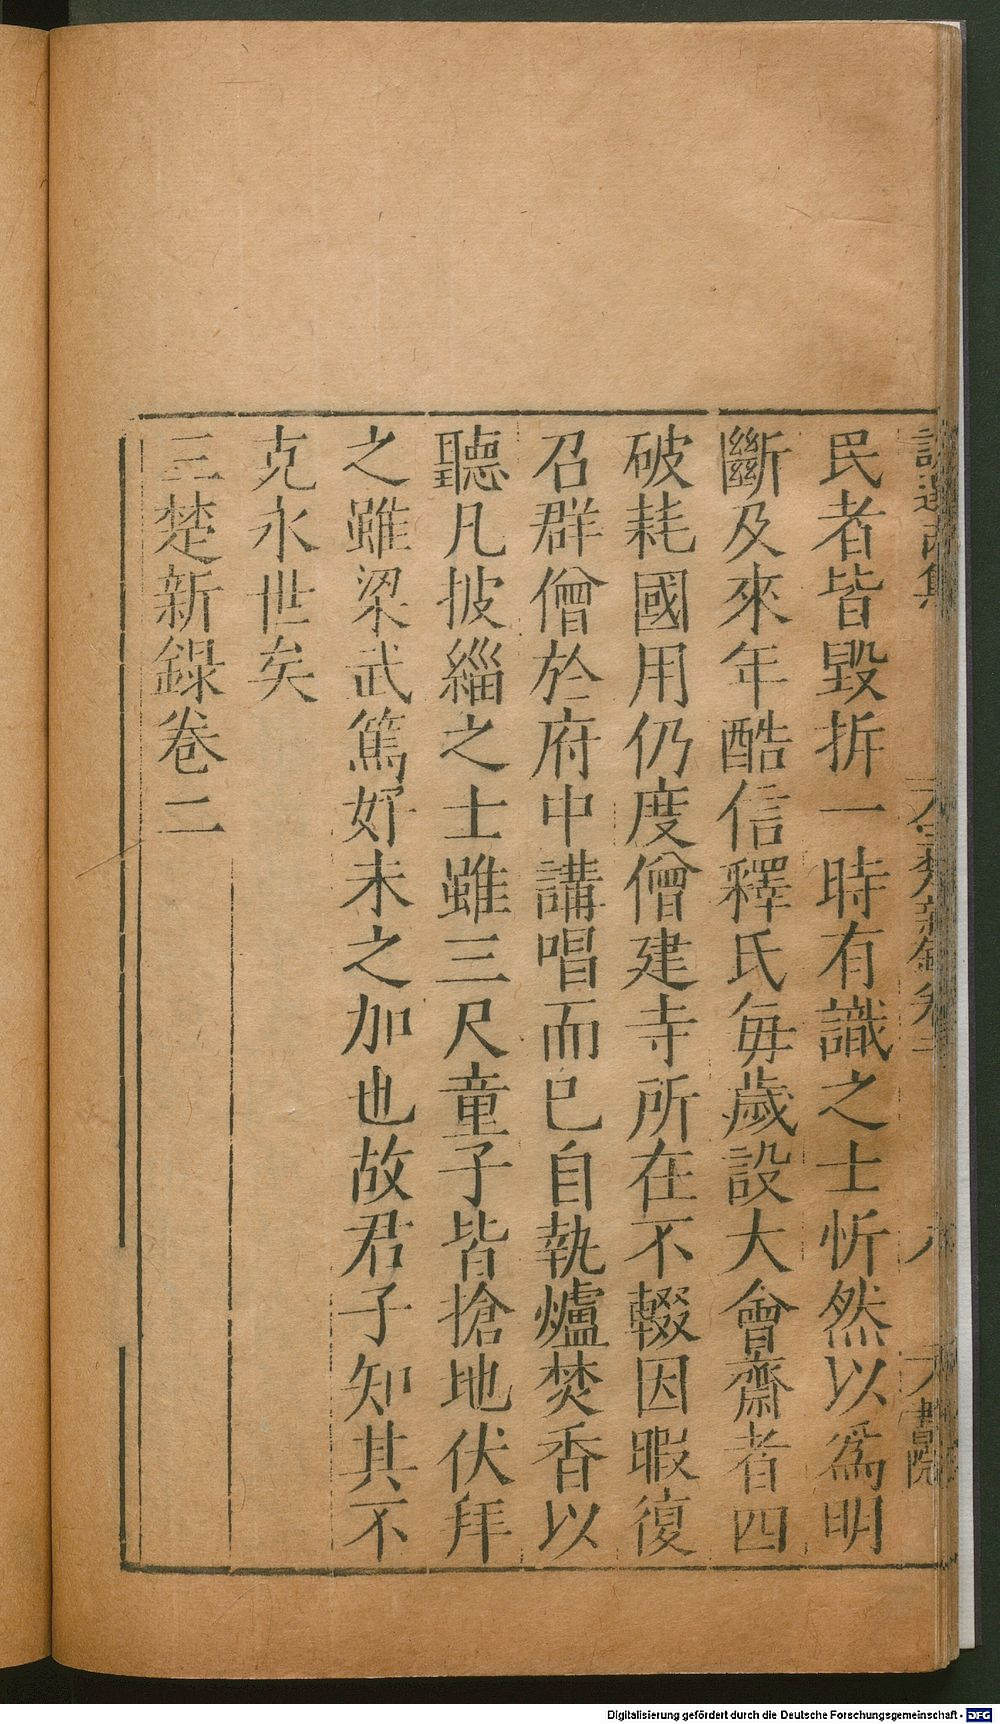 三楚新錄卷二 八
民者皆毀拆一時有識之士忻然以爲明
斷及來年酷信釋氏每歲設大會齋者四
破耗國用仍度僧建寺所在不輟因暇復
召群僧於府中講唱而已自執爐焚香以
聽凡披緇之士雖三尺童子皆搶地伏拜
之雖梁武篤好未之加也故君子知其不
克永世矣
三楚新錄卷二
Digitalisierung gefördert durch die Deutsche Forschungsgemeinschaft - DFG